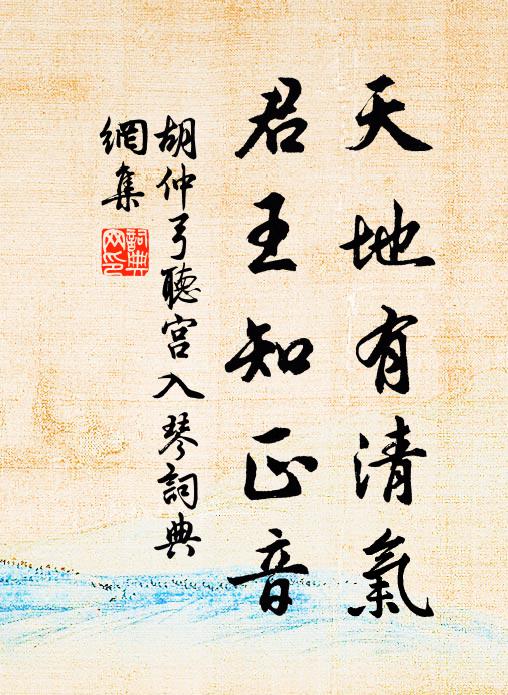 天地有清氣
君王知正音
胡仲弓聽宮入琴詞典
網集
詞典
网印